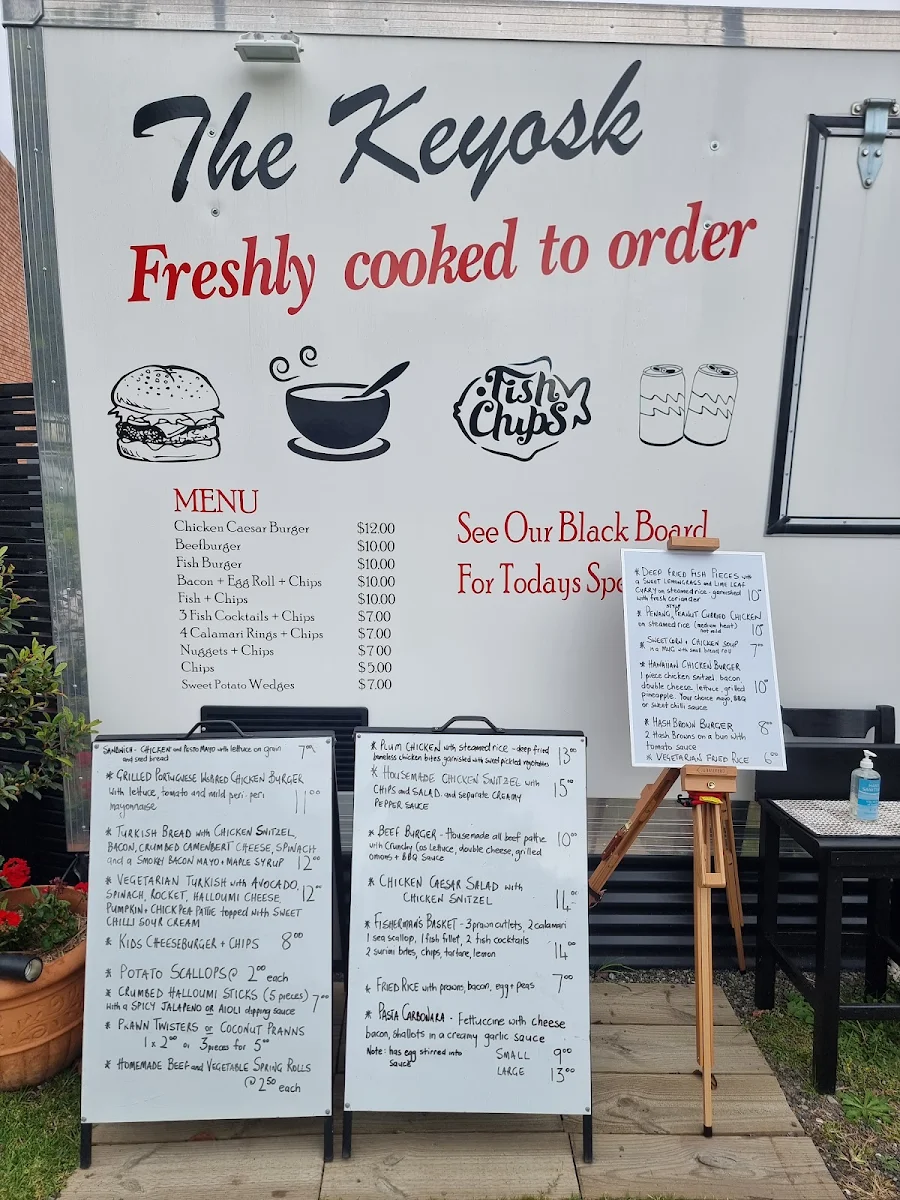 The Keyosk
Freshly cooked to order
Fish
Chips
MENU
Chicken Caesar Burger $12.00
Beefburger $10.00
Fish Burger $10.00
Bacon + Egg Roll + Chips $10.00
Fish + Chips $10.00
3 Fish Cocktails + Chips $7.00
4 Calamari Rings + Chips $7.00
Nuggets + Chips $7.00
Chips $5.00
Sweet Potato Wedges $7.00
See Our Black Board
For Todays Spe
* DEEP FRIED FISH PIECES with
a SWEET LEMONGRASS and LIME LEAF
CURRY on steamed rice - garnished
with fresh coriander 10
* PENANG STYLE PEANUT CURRIED CHICKEN
on steamed rice (medium heat)
not mild 10
* SWEETCORN + CHICKEN SOUP
in a MUG with small bread roll 7
* HAWAIIAN CHICKEN BURGER
1 piece chicken snitzel, bacon,
double cheese, lettuce, grilled
pineapple. Your choice mayo, BBQ
or sweet chilli sauce 10
* HASH BROWN BURGER
2 Hash Browns on a bun with
tomato sauce 8
* VEGETARIAN FRIED RICE 6
SANDWICH - CHICKEN and PESTO MAYO with lettuce on grain
and seed bread 7
* GRILLED PORTUGUESE WINGED CHICKEN BURGER
with lettuce, tomato and mild peri-peri
mayonnaise 11
* TURKISH BREAD with CHICKEN SNITZEL,
BACON, CRUMBED CAMENBERT CHEESE, SPINACH
and a SMOKEY BACON MAYO + MAPLE SYRUP 12
* VEGETARIAN TURKISH with AVOCADO,
SPINACH, ROCKET, HALLOUMI CHEESE, 12
PUMPKIN + CHICKPEA PATTIE topped with SWEET
CHILLI SOUR CREAM
* KIDS CHEESEBURGER + CHIPS 8
* POTATO SCALLOPS @ 2 each
* CRUMBED HALLOUMI STICKS (5 pieces) 7
with a SPICY JALAPENO OR AIOLI dipping sauce
* PRAWN TWISTERS or COCONUT PRAWNS
1 x 2 or 3 pieces for 5
* HOMEMADE BEEF and VEGETABLE SPRING ROLLS
@ 2.50 each
* PLUM CHICKEN with steamed rice - deep fried 13
boneless chicken bites garnished with sweet pickled vegetables
* HOUSEMADE CHICKEN SNITZEL with
CHIPS and SALAD and separate CREAMY 15
PEPPER SAUCE
* BEEF BURGER - Housemade all beef pattie 10
with Crunchy Cos Lettuce, double cheese, grilled
onions + BBQ Sauce
* CHICKEN CAESAR SALAD with
CHICKEN SNITZEL 14
* FISHERMAN'S BASKET - 3 prawn cutlets, 2 calamari
1 sea scallop, 1 fish fillet, 2 fish cocktails
2 surimi bites, chips, tartare, lemon 14
* FRIED RICE with prawns, bacon, egg + peas 7
* PASTA CARBONARA - Fettuccine with cheese
bacon, shallots in a creamy garlic sauce
Note: has egg stirred into
sauce SMALL 9
LARGE 13